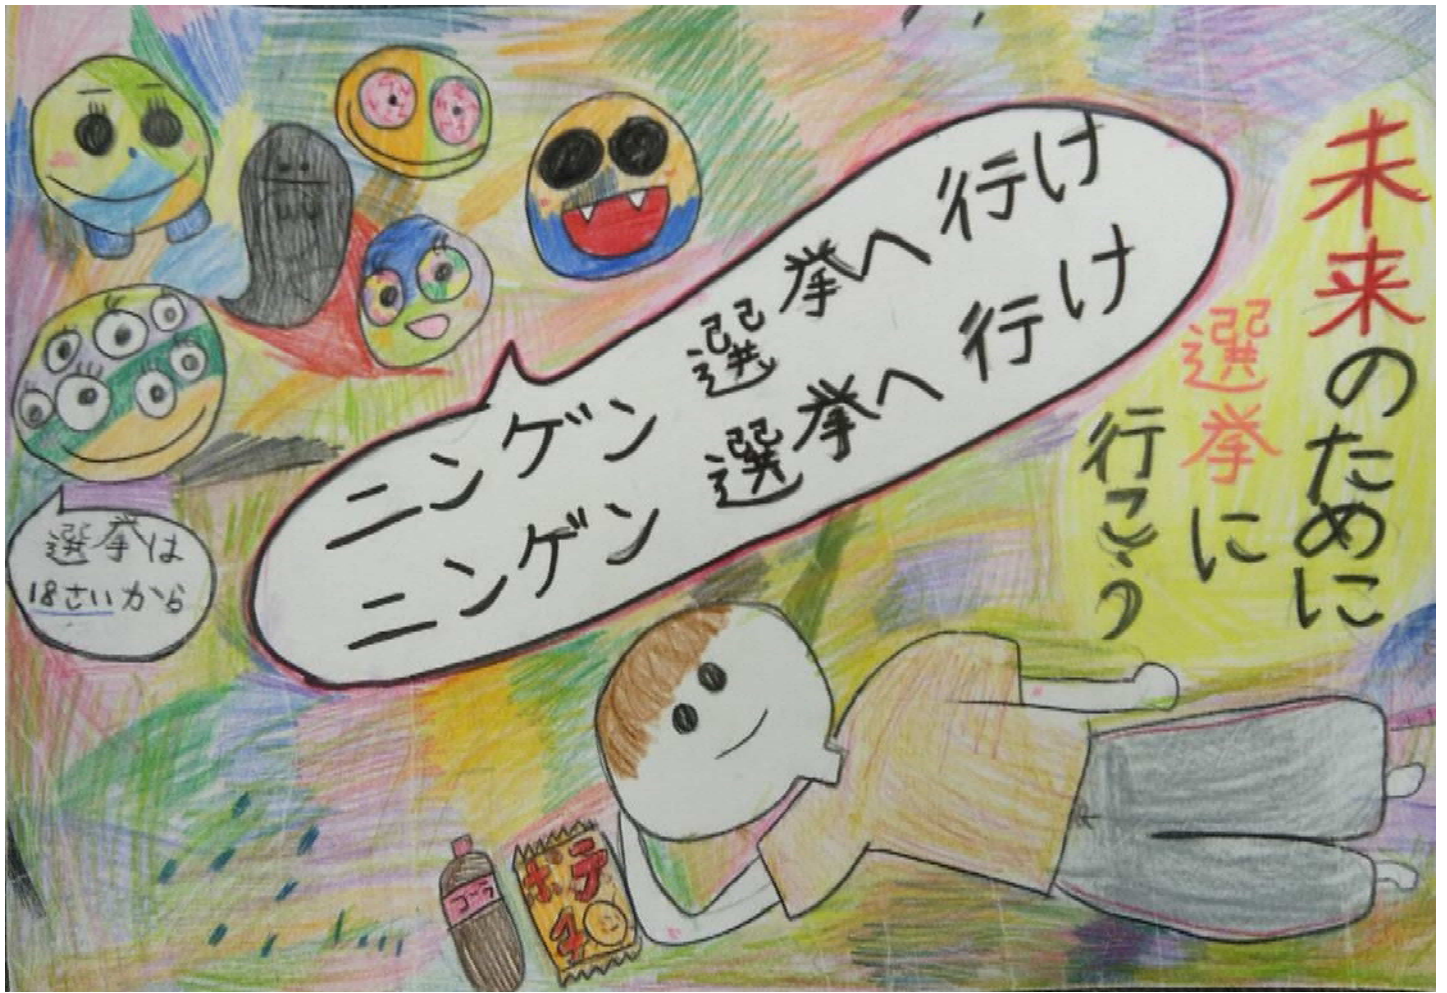 未来のために
選挙に
行こう
ニンゲン選挙へ行け
ニンゲン選挙へ行け
選挙は
18さいから
コーラ
ポテ
チ